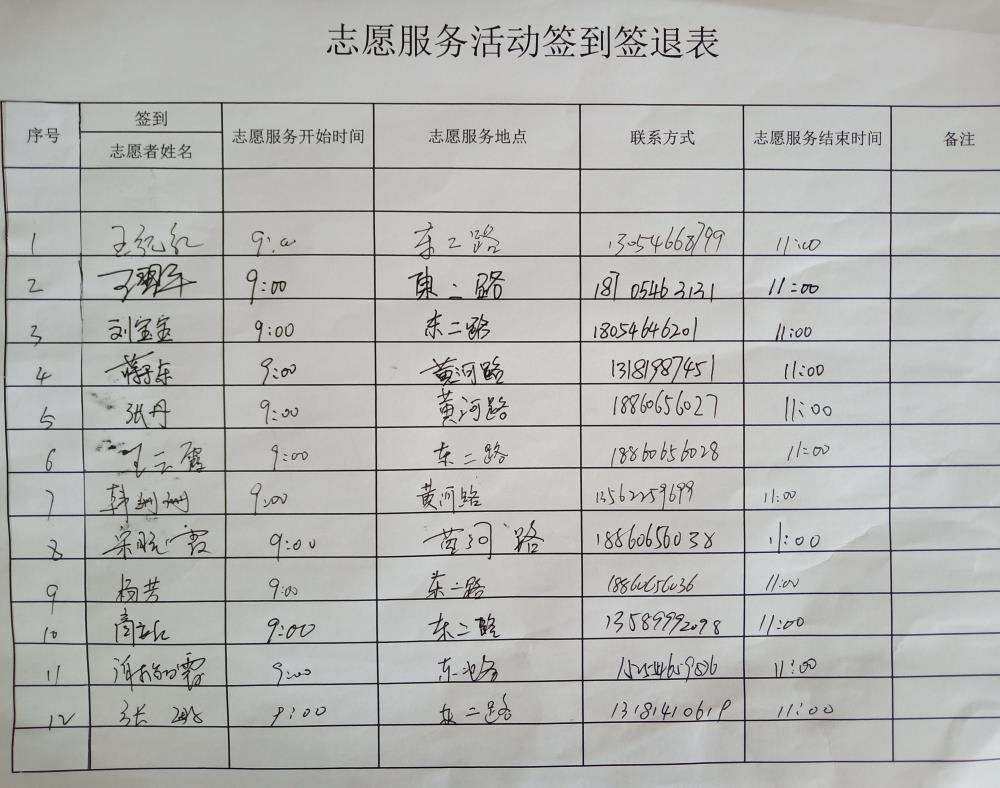 志愿服务活动签到签退表
序号 签到 志愿者姓名 志愿服务开始时间 志愿服务地点 联系方式 志愿服务结束时间 备注
1 王纪红 9:00 东二路 13054668799 11:00
2 9:00 東二路 18705463131 11:00
3 刘宝宝 9:00 东二路 18054646201 11:00
4 9:00 黄河路 13181987451 11:00
5 张丹 9:00 黄河路 18860656027 11:00
6 王云霞 9:00 东二路 18860656028 11:00
7 韩珊珊 9:00 黄河路 13562259699 11:00
8 梁晓霞 9:00 黄河路 18860656038 11:00
9 杨芳 9:00 东二路 18860656036 11:00
10 9:00 东二路 13589992098 11:00
11 9:00 东二路 15254659836 11:00
12 张 9:00 东二路 13181410619 11:00